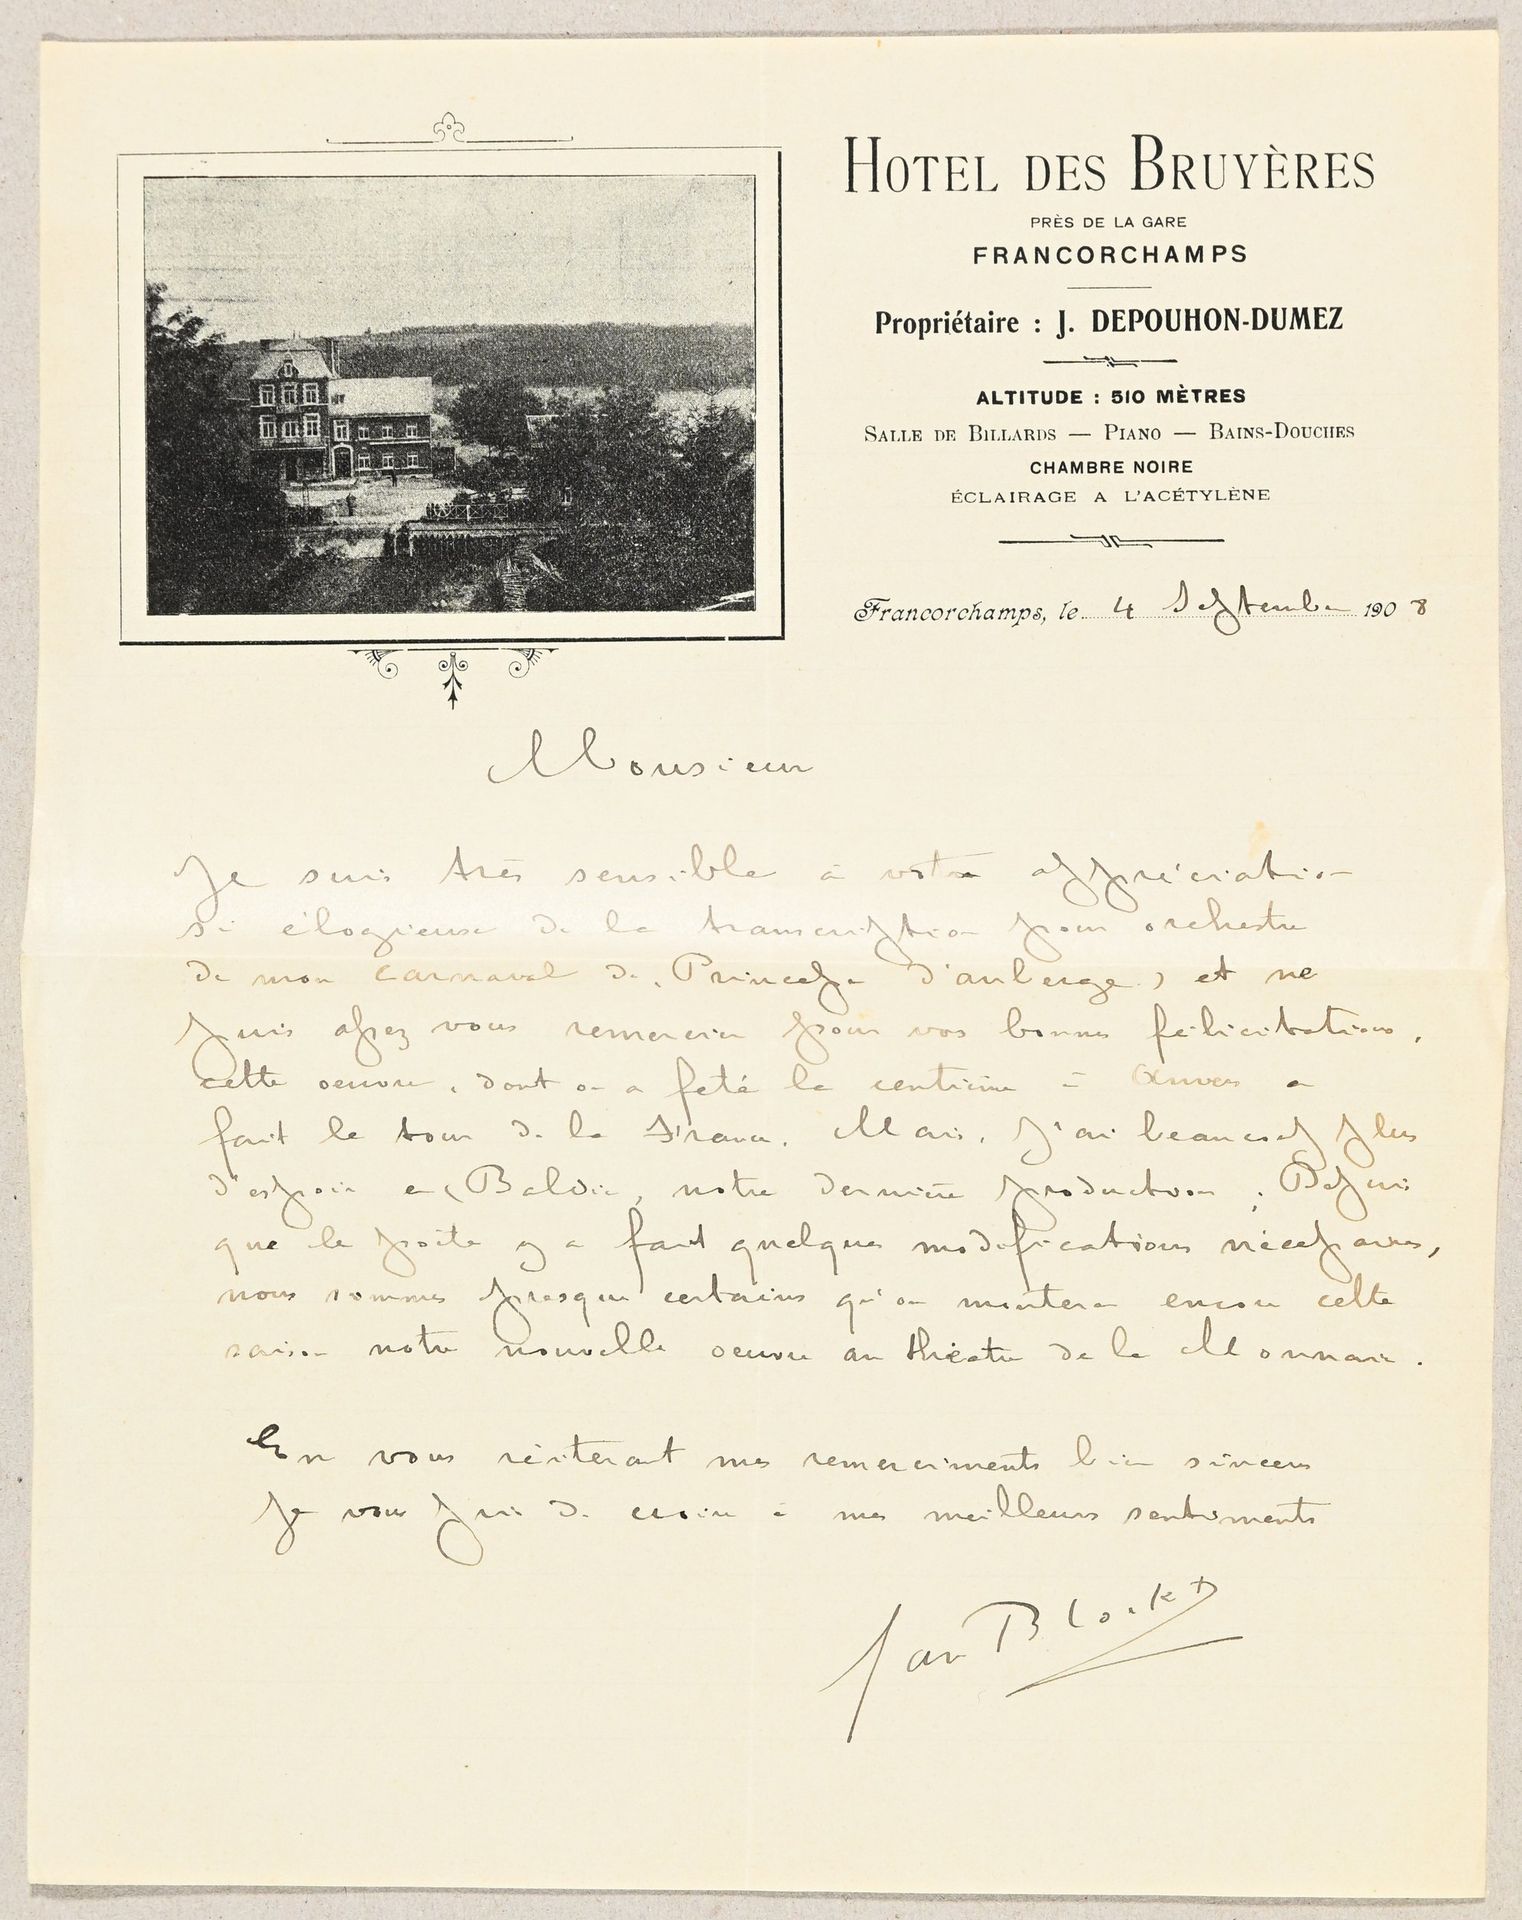 HOTEL DES BRUYÈRES
PRÈS DE LA GARE
FRANCORCHAMPS
Propriétaire : J. DEPOUHON-DUMEZ
ALTITUDE : 510 MÈTRES
SALLE DE BILLARDS — PIANO — BAINS-DOUCHES
CHAMBRE NOIRE
ÉCLAIRAGE A L'ACÉTYLÈNE
Francorchamps, le 4 Septembre 1908
Monsieur
Je suis très sensible à votre appréciation
si élogieuse de la transcription pour orchestre
de mon Carnaval de (Princesse d'auberge) et ne
puis assez vous remercier pour vos bonnes félicitations,
cette oeuvre, dont on a feté la centième à Anvers a
fait le tour de la France. Mais, j'ai beaucoup plus
d'espoir en (Baldie, notre dernière production; Depuis
que le poète y a fait quelques modifications nécessaires,
nous sommes presque certains qu'on montera encore cette
saison notre nouvelle oeuvre au théâtre de la Monnaie.
En vous réiterant mes remerciments bien sincères
Je vous prie de croire à mes meilleurs sentiments
Jan Blockx